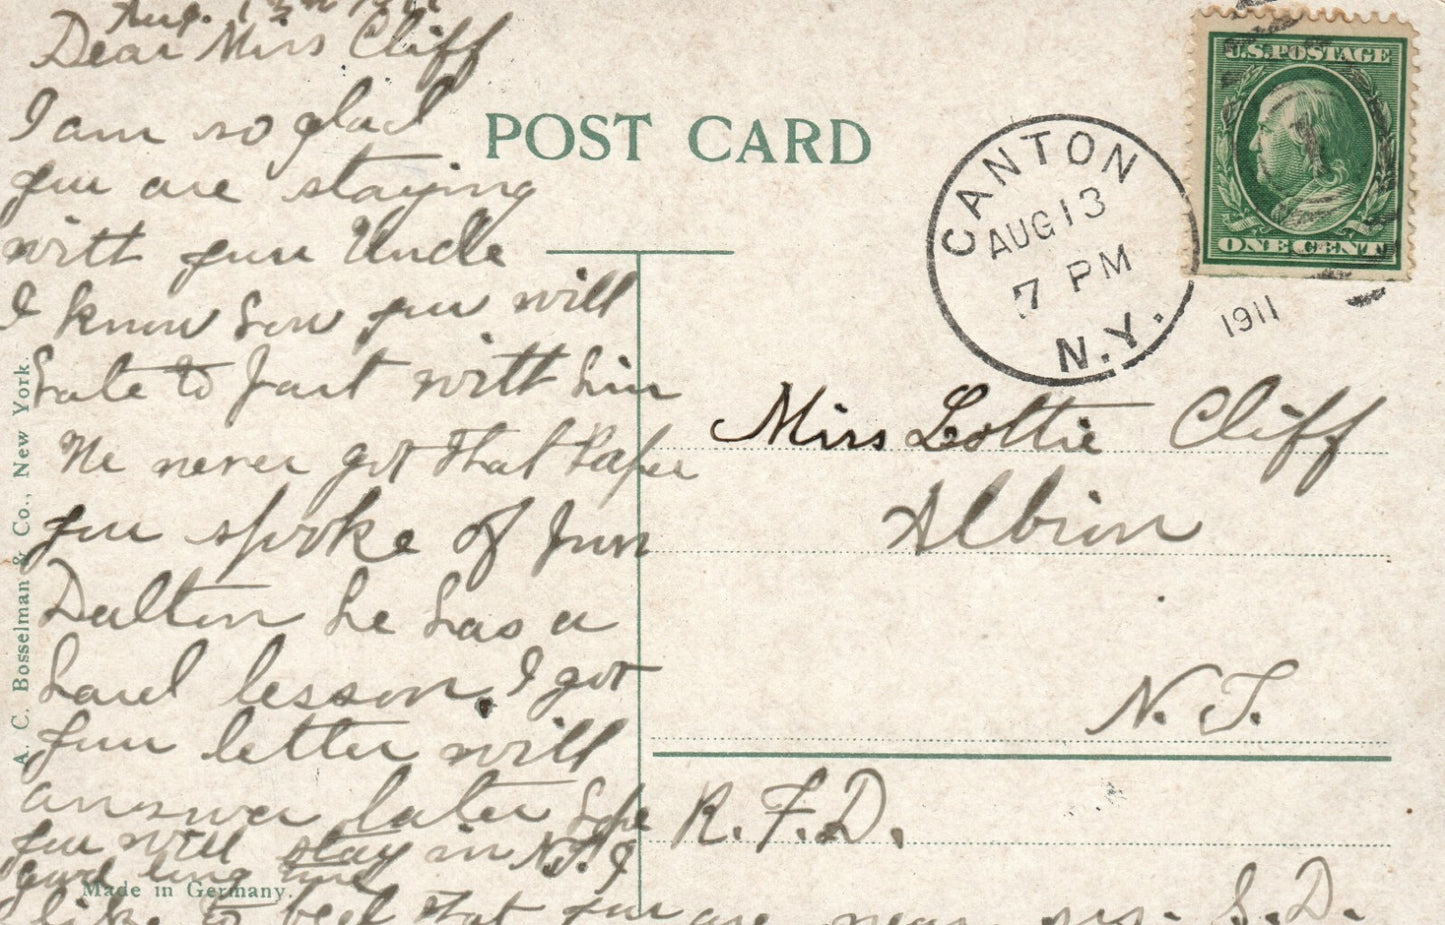 Aug. 13th 1911
Dear Miss Cliff
I am so glad
you are staying
with your Uncle
I know how you will
hate to part with him
He never got that Paper
you spoke of from
Dalton he has a
hard lesson. I got
your letter will
answer later hope
you will stay in N.J. a
good long time
I like to feel that you are near us. S.D.
POST CARD
CANTON
AUG 13
7 PM
N.Y.
1911
U.S. POSTAGE
ONE CENT
Miss Lottie Cliff
Albion
N. J.
R. F. D.
A. C. Bosselman & Co., New York.
Made in Germany.